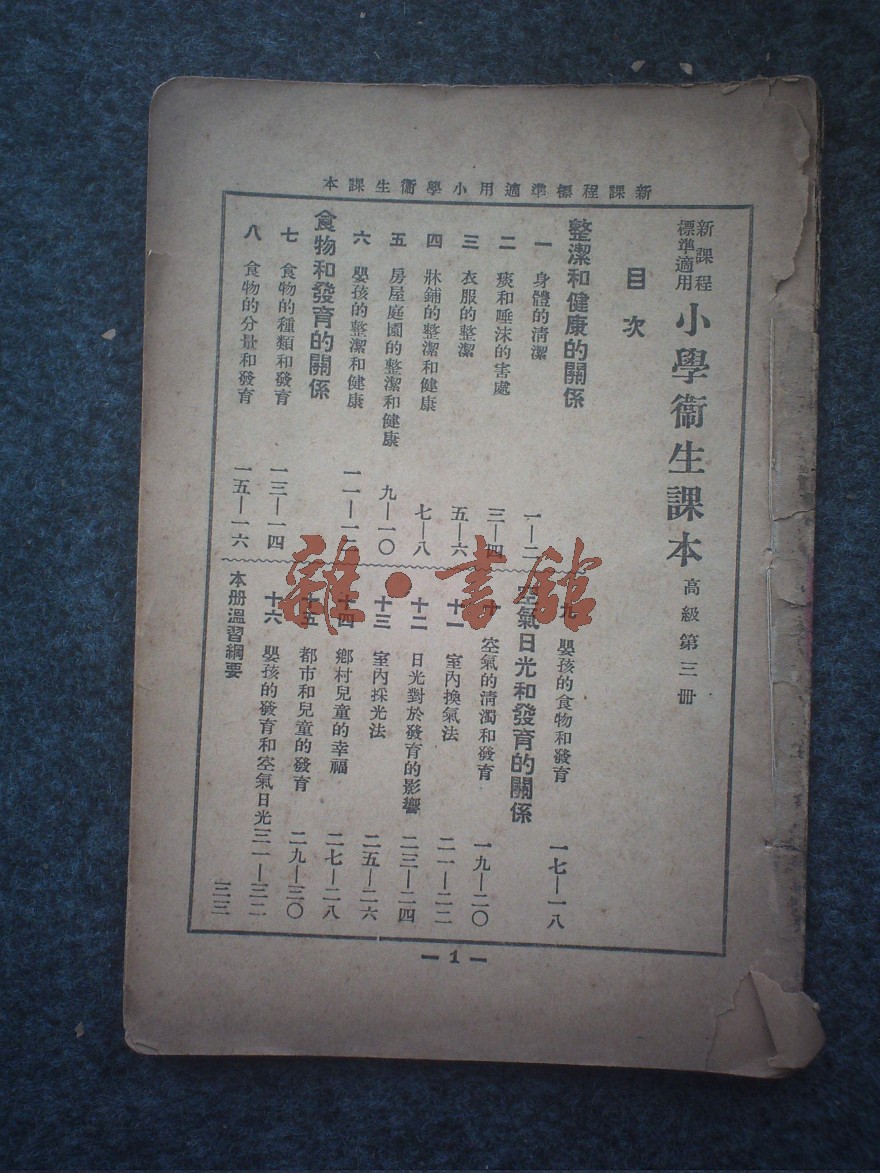 新課程標準適用小學衞生課本
新課程標準適用 小學衞生課本 高級第三册
目次
整潔和健康的關係
一 身體的清潔 一—二
二 痰和唾沫的害處 三—四
三 衣服的整潔 五—六
四 牀鋪的整潔和健康 七—八
五 房屋庭園的整潔和健康 九—一〇
六 嬰孩的整潔和健康 一一—一二
食物和發育的關係
七 食物的種類和發育 一三—一四
八 食物的分量和發育 一五—一六
九 嬰孩的食物和發育 一七—一八
空氣日光和發育的關係
十 空氣的清濁和發育 一九—二〇
十一 室內換氣法 二一—二二
十二 日光對於發育的影響 二三—二四
十三 室內採光法 二五—二六
十四 鄉村兒童的幸福 二七—二八
十五 都市和兒童的發育 二九—三〇
十六 嬰孩的發育和空氣日光 三一—三二
本册溫習綱要 三三
— 1 —
雜·書館